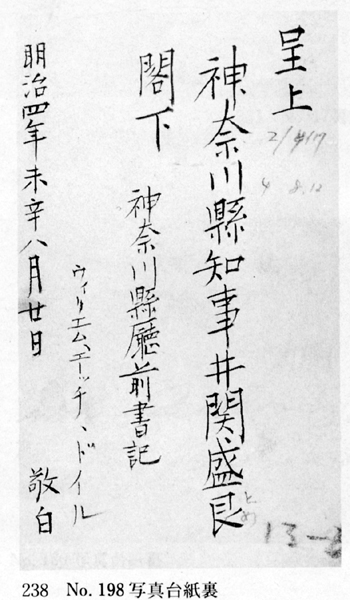 呈上
神奈川縣知事井関盛艮
とめ
閣下
神奈川縣廳前書記
ウィリエム、エーッチ、ドイル
敬白
明治四年未辛八月廿日
238 No. 198 写真台紙裏